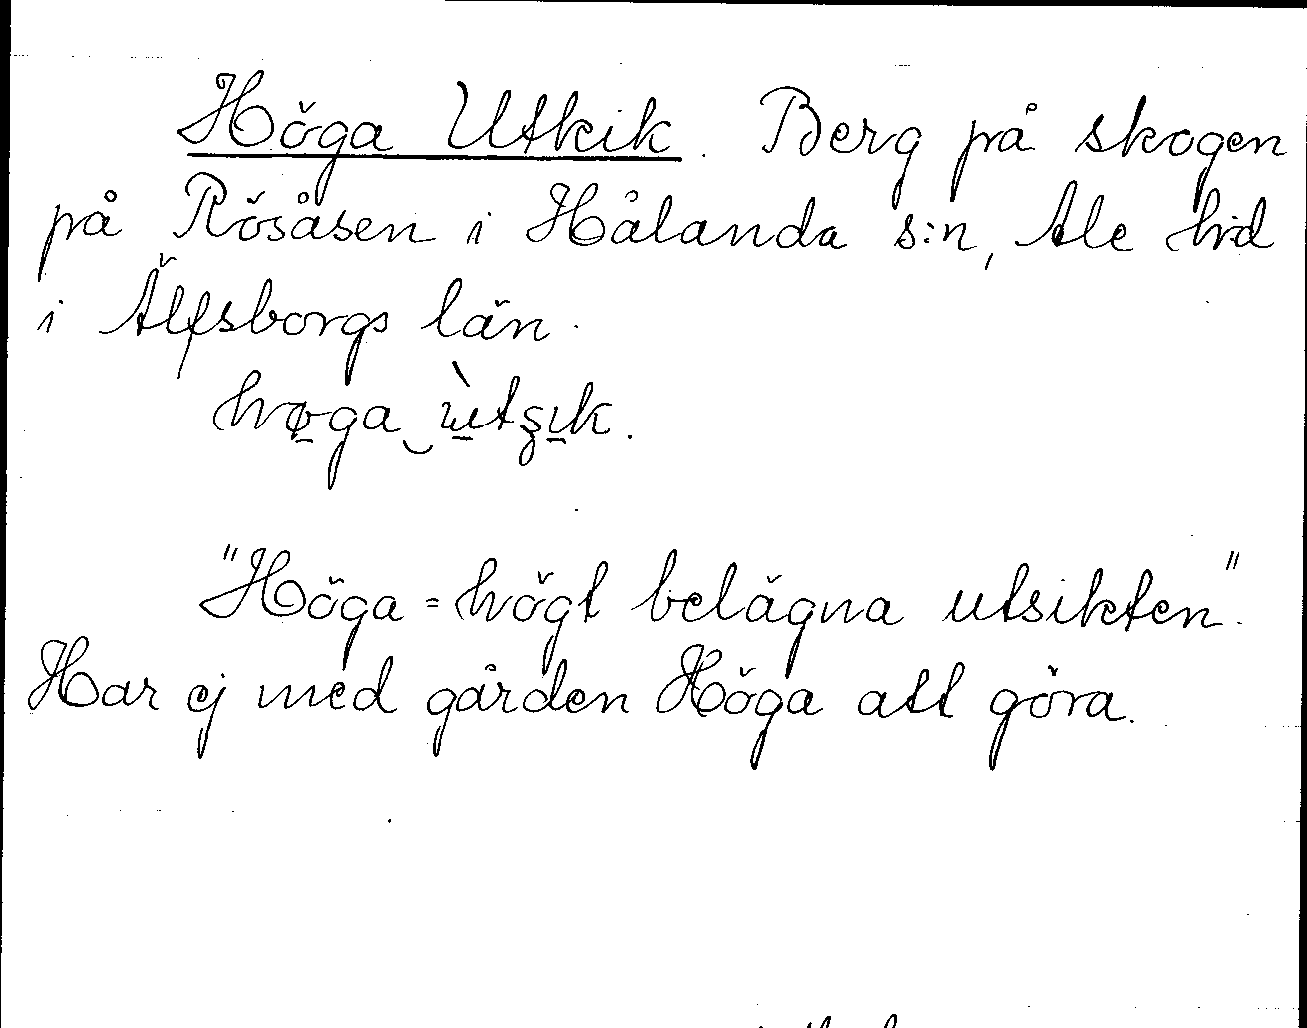 Höga Utkik. Berg på skogen
på Rösåsen i Hålanda s:n, Ale hd
i Älfsborgs län.
høga ùtʂɩk.
"Höga = högt belägna utsikten".
Har ej med gården Höga att göra.